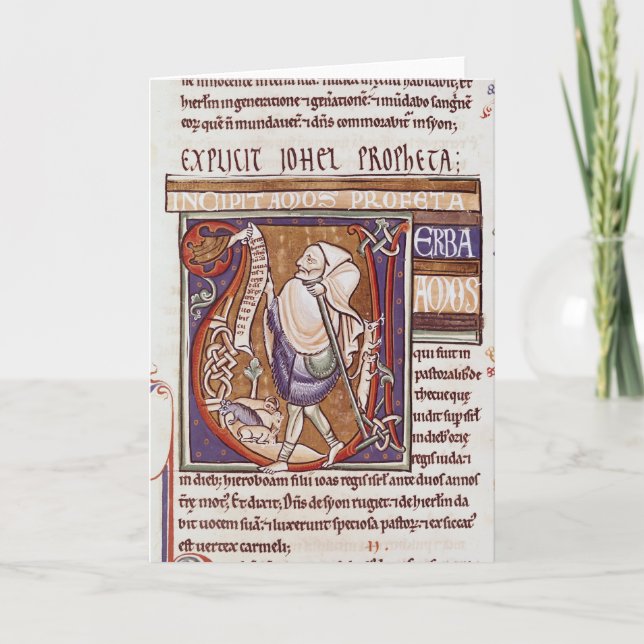 ne innocente
hierłm in generatione ⁊ gen̄ationē. ⁊ mūdabo sangⁱnē
eoꝝ quē n̄ mundauerā. ⁊ dn̄s commorabit̄ in syon;
EXPLICIT IOHEL PROPHETA;
INCIPIT AMOS PROFETA
VERBA
AMOS
qui fuit in
pastoralib; de
thecue que
uidit sup isrł
in dieb; ozie
regis iuda. ⁊
in dieb; hieroboam filii ioas regis isrł. ante duos annos
tr̄e mot̄. Et dixit; Dn̄s de syon rugiet. ⁊ de hierłm da
bit uocem suā. ⁊ luxerunt speciosa pastoꝝ. ⁊ exsiccat̄
est uertex carmeli;